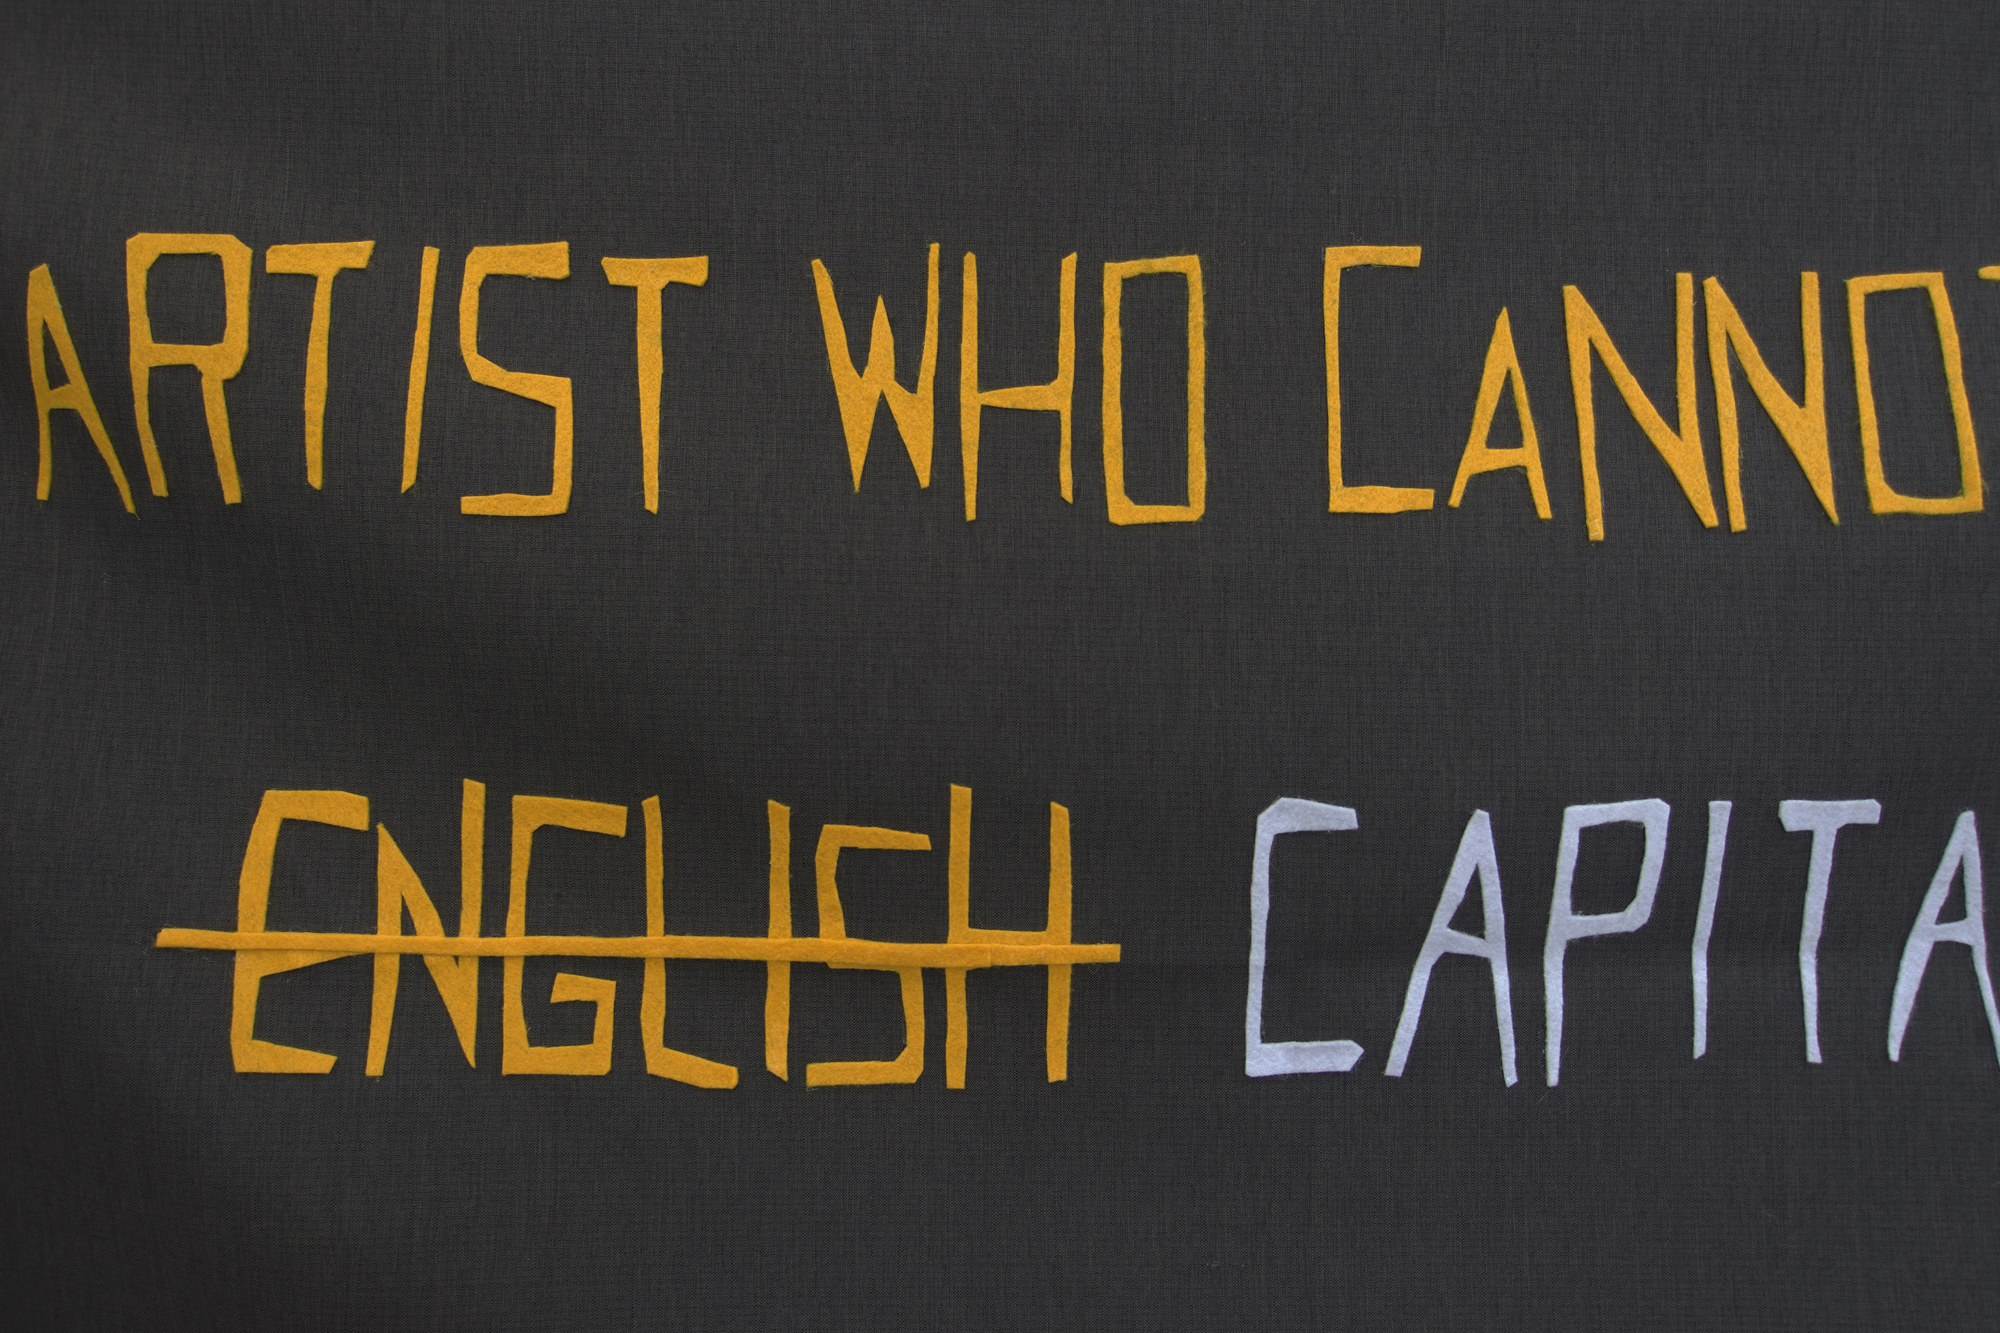 ARTIST WHO CANNOT
ENGLISH CAPITA